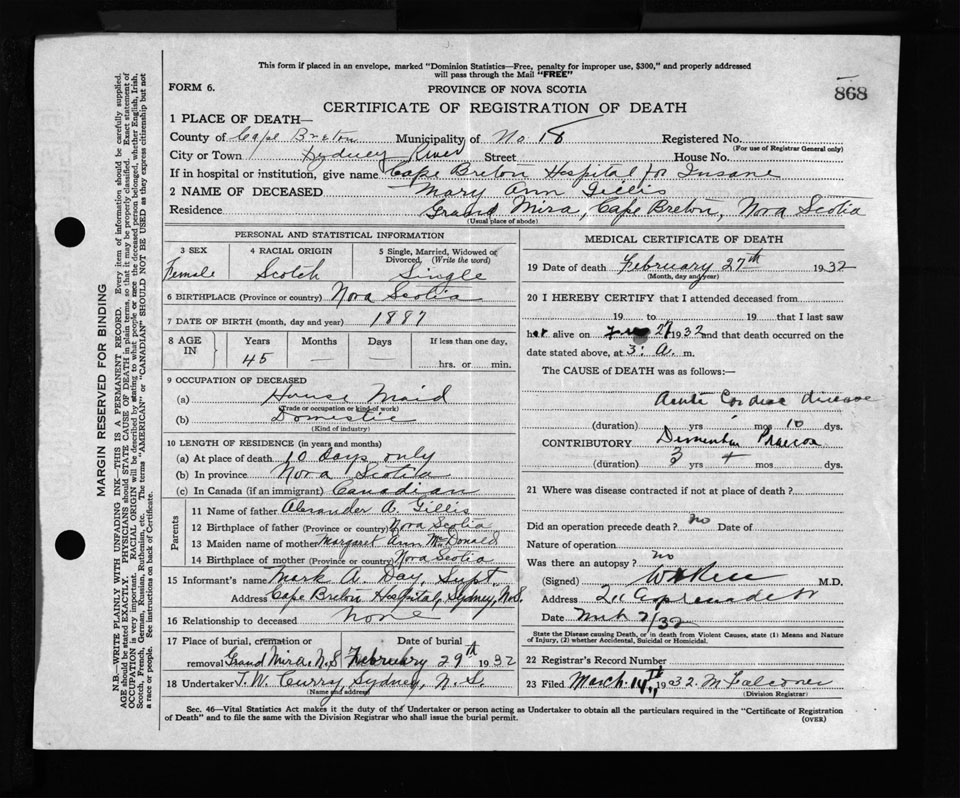 This form if placed in an envelope, marked "Dominion Statistics—Free, penalty for improper use, $300," and properly addressed
will pass through the Mail "FREE"
FORM 6.
PROVINCE OF NOVA SCOTIA
868
CERTIFICATE OF REGISTRATION OF DEATH
1 PLACE OF DEATH—
County of Cape Breton Municipality of No 18 Registered No.
(For use of Registrar General only)
City or Town Sydney River Street House No.
If in hospital or institution, give name Cape Breton Hospital for Insane
2 NAME OF DECEASED Mary Ann Gillis
Residence Grand Mira, Cape Breton, Nova Scotia
(Usual place of abode)
MARGIN RESERVED FOR BINDING
N.B.—WRITE PLAINLY WITH UNFADING INK—THIS IS A PERMANENT RECORD. Every item of information should be carefully supplied.
AGE should be stated EXACTLY. PHYSICIANS should STATE CAUSE OF DEATH in plain terms, so that it may be properly classified. Exact statement of
OCCUPATION is very important. RACIAL ORIGIN will be described by stating to what people or race the deceased person belonged, whether English, Irish,
Scotch, French, German, Russian, Ruthenian, etc. The terms "AMERICAN" or "CANADIAN" SHOULD NOT BE USED as they express citizenship but not
a race or people. See instructions on back of Certificate.
PERSONAL AND STATISTICAL INFORMATION
3 SEX
Female
4 RACIAL ORIGIN
Scotch
5 Single, Married, Widowed or
Divorced, (Write the word)
Single
6 BIRTHPLACE (Province or country) Nova Scotia
7 DATE OF BIRTH (month, day and year) 1887
8 AGE IN
Years
45
Months
—
Days
If less than one day,
hrs. or min.
9 OCCUPATION OF DECEASED
(a) House Maid
(Trade or occupation or kind of work)
(b) Domestic
(Kind of industry)
10 LENGTH OF RESIDENCE (in years and months)
(a) At place of death 10 days only
(b) In province Nova Scotia
(c) In Canada (if an immigrant) Canadian
Parents
11 Name of father Alexander A. Gillis
12 Birthplace of father (Province or country) Nova Scotia
13 Maiden name of mother Margaret Ann McDonald
14 Birthplace of mother (Province or country) Nova Scotia
15 Informant's name Mark A. Day, Supt.
Address Cape Breton Hospital, Sydney, N.S.
16 Relationship to deceased None
17 Place of burial, cremation or Date of burial
removal Grand Mira N.S February 29th 1932
18 Undertaker T. W. Curry Sydney, N.S.
(Name and address)
MEDICAL CERTIFICATE OF DEATH
19 Date of death February 27th 1932
(Month, day and year)
20 I HEREBY CERTIFY that I attended deceased from
19 to 19 that I last saw
her alive on 27 1932 and that death occurred on the
date stated above, at 3: A. m.
The CAUSE OF DEATH was as follows:—
Acute Cardiac disease
(duration) yrs mos 10 dys.
CONTRIBUTORY Dementia Praecox
(duration) 3 yrs + mos dys.
21 Where was disease contracted if not at place of death?
Did an operation precede death? no Date of
Nature of operation
Was there an autopsy? no
(Signed) M.D.
Address 211 Esplanade St
Date Mch 2/32
State the Disease causing Death, or in death from Violent Causes, state (1) Means and Nature
of Injury, (2) whether Accidental, Suicidal or Homicidal.
22 Registrar's Record Number
23 Filed March. 14th, 1932. M Falconer
(Division Registrar)
Sec. 46—Vital Statistics Act makes it the duty of the Undertaker or person acting as Undertaker to obtain all the particulars required in the "Certificate of Registration
of Death" and to file the same with the Division Registrar who shall issue the burial permit.
(OVER)